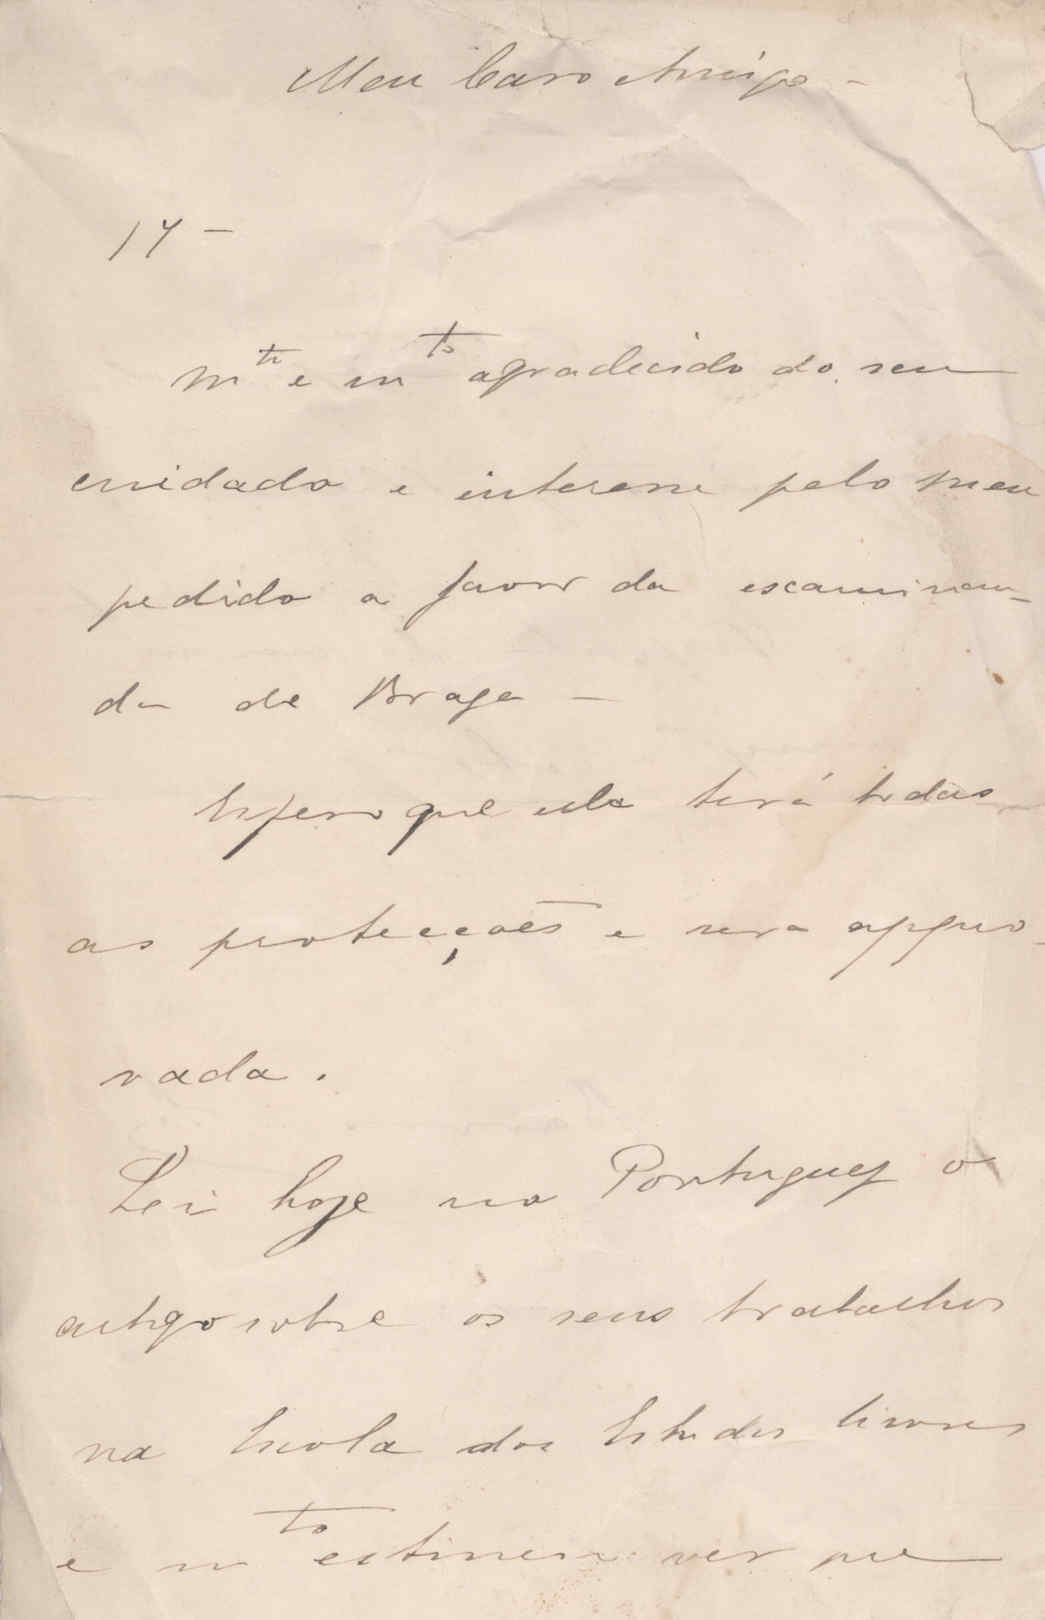 Meu Caro Amigo -
17 -
Mto e mto agradecido do seu
cuidado e interesse pelo meu
pedido a favor da escaminan-
da de Braga -
Espero que ela terá todas
as protecções e sera appro-
vada.
Lei hoje no Portuguez o
artigo sobre os seus trabalhos
na Escola dos Estudos livres
e mto estimei ver que